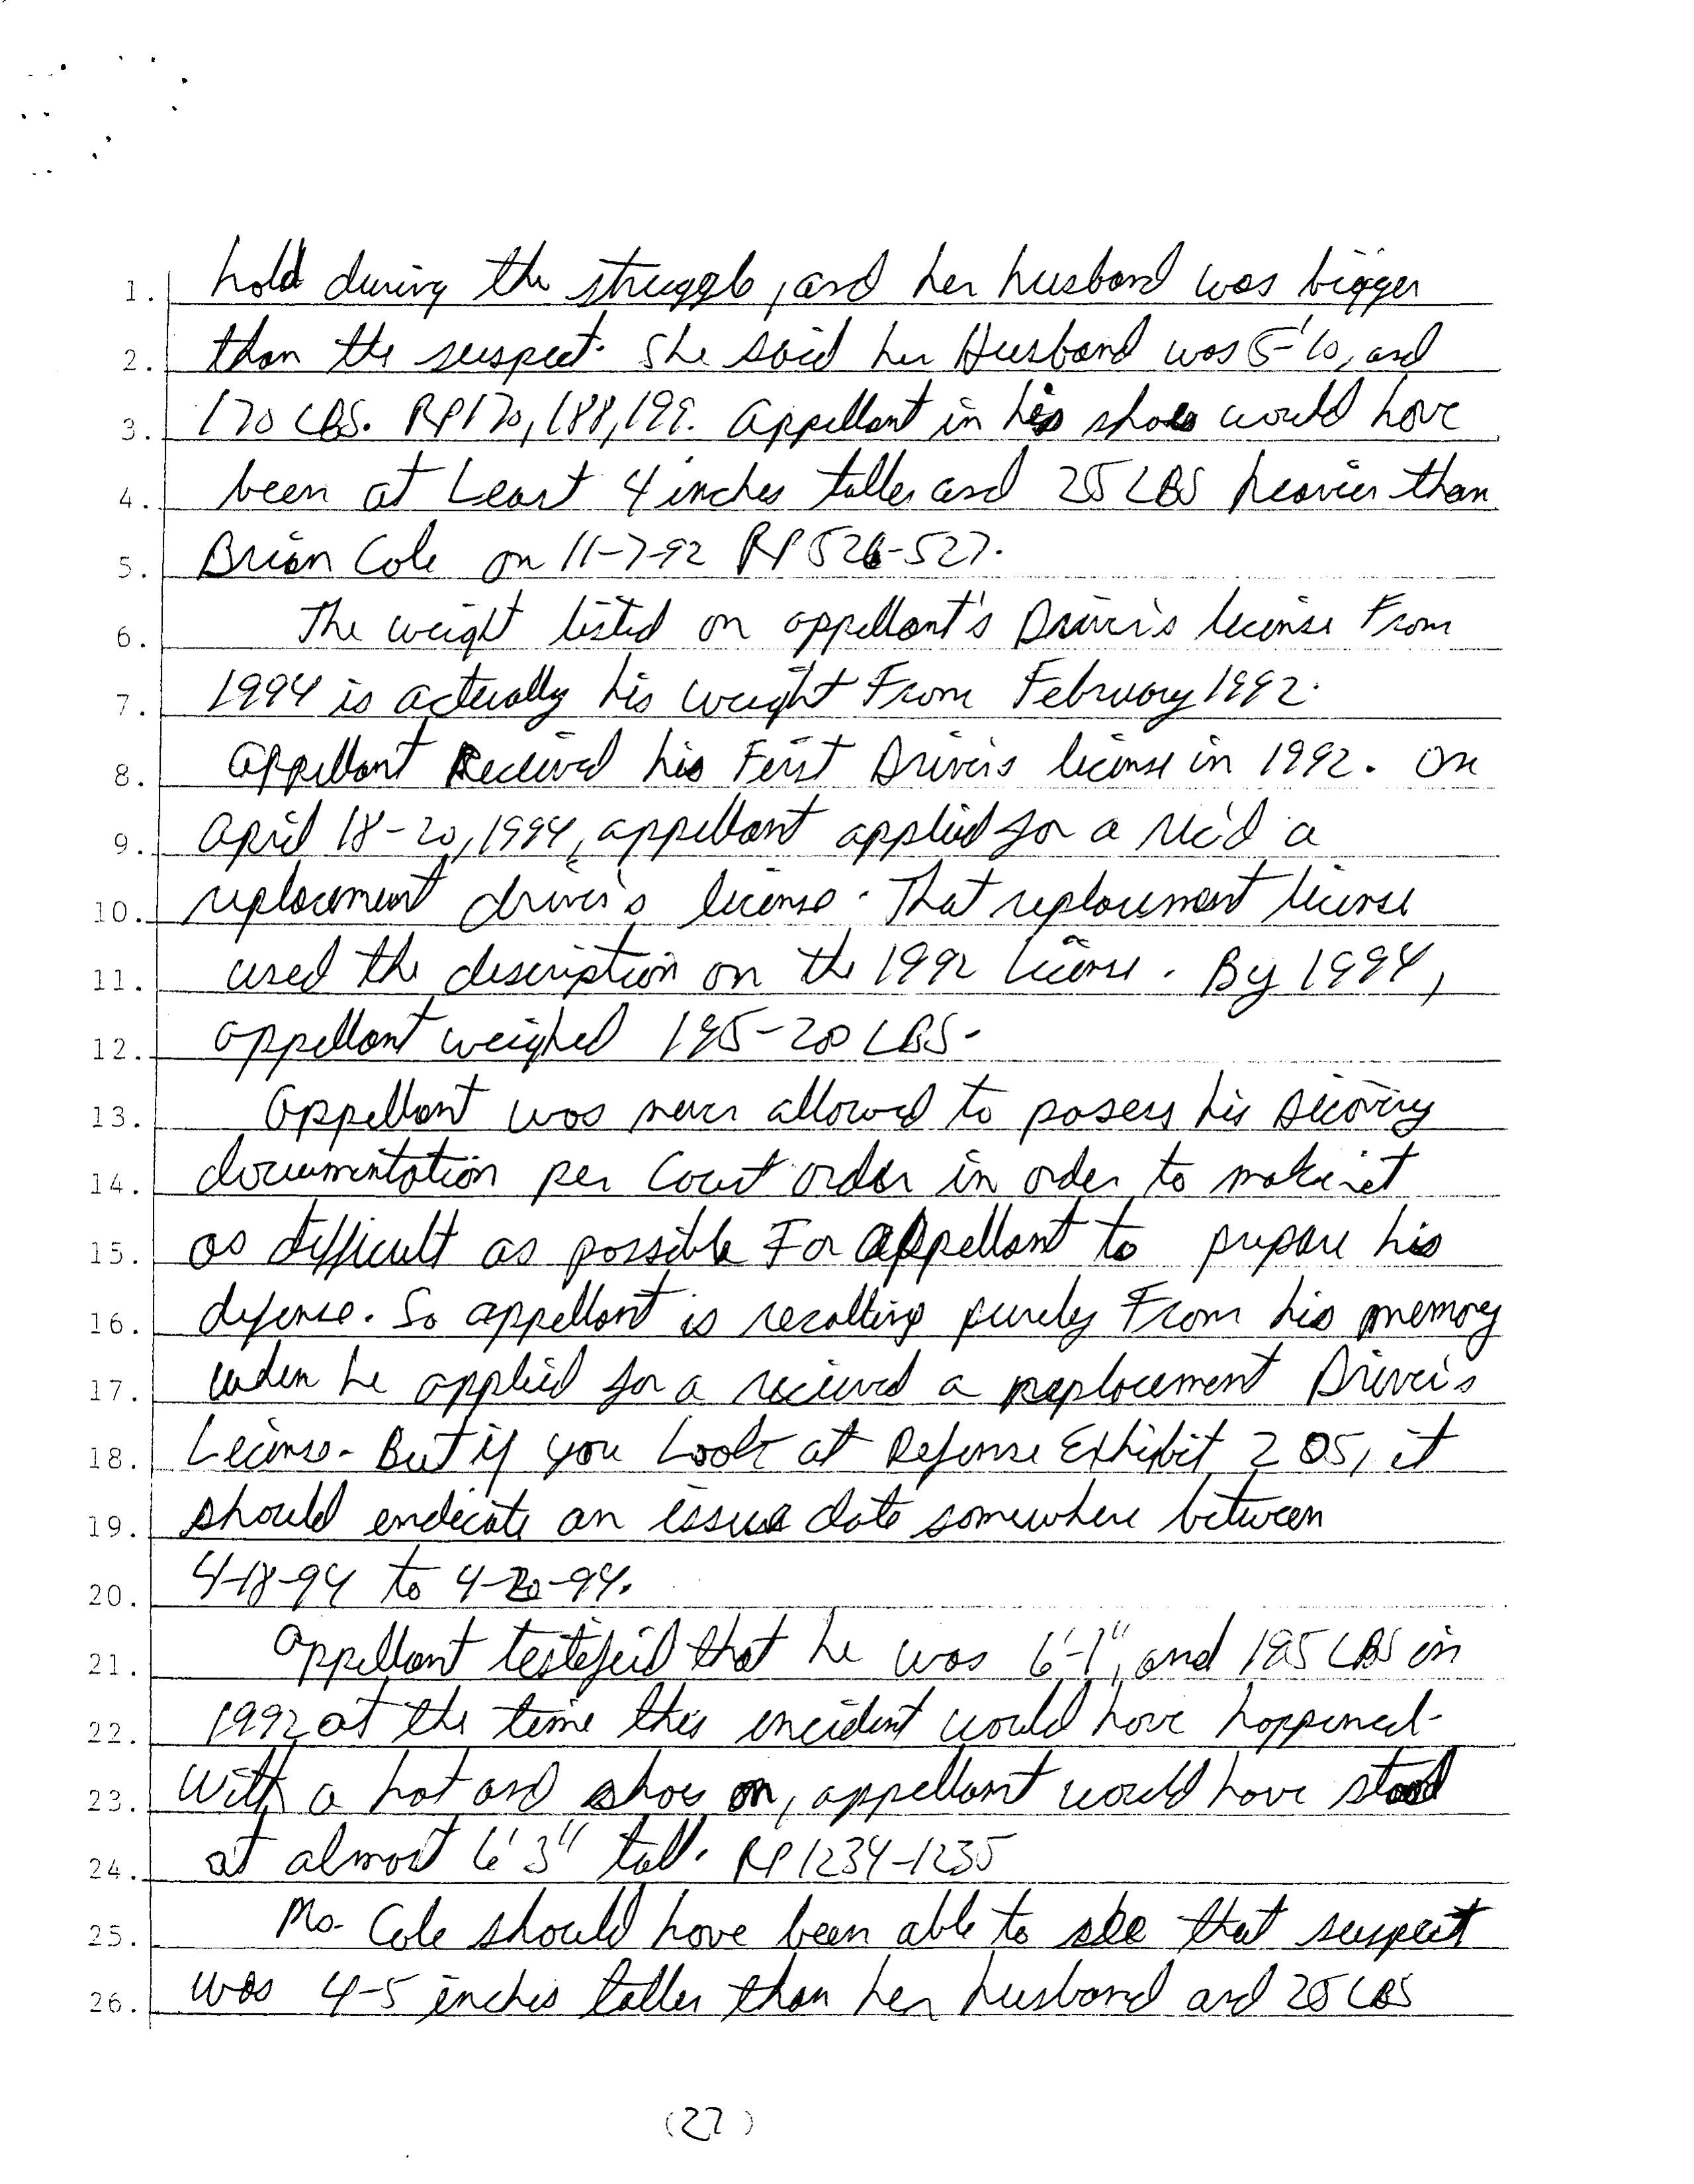 1. hold during the struggle, and her husband was bigger
2. than the suspect. She said her Husband was 5'-10, and
3. 170 LBS. RP170, 188, 199. Appellant in his shoes would have
4. been at Least 4 inches taller and 25 LBS heavier than
5. Brian Cole on 11-7-92 RP 526-527.
6. The weight listed on appellant's Driver's license From
7. 1994 is actually his weight From February 1992.
8. Appellant Received his First Driver's license in 1992. On
9. April 18-20, 1994, appellant applied for a rec'd a
10. replacement driver's license. That replacement license
11. used the description on the 1992 license. By 1994,
12. appellant weighed 195-200 LBS.
13. Appellant was never allowed to posess his
14. documentation per Court order in order to make it
15. as difficult as possible For appellant to prepare his
16. defense. So appellant is purely From his memory
17. when he applied for a recieved a replacement Driver's
18. License. But if you Look at Defense Exhibit 205, it
19. should endicate an issue date somewhere between
20. 4-18-94 to 4-20-94.
21. Appellant testified that he was 6'-1", and 195 LBS in
22. 1992 at the time this encident would have happened.
23. With a hat and shoes on, appellant would have stood
24. at almost 6'3" tall. RP 1234-1235
25. Ms. Cole should have been able to see that suspect
26. was 4-5 inches taller than her husband and 25 LBS
(27)